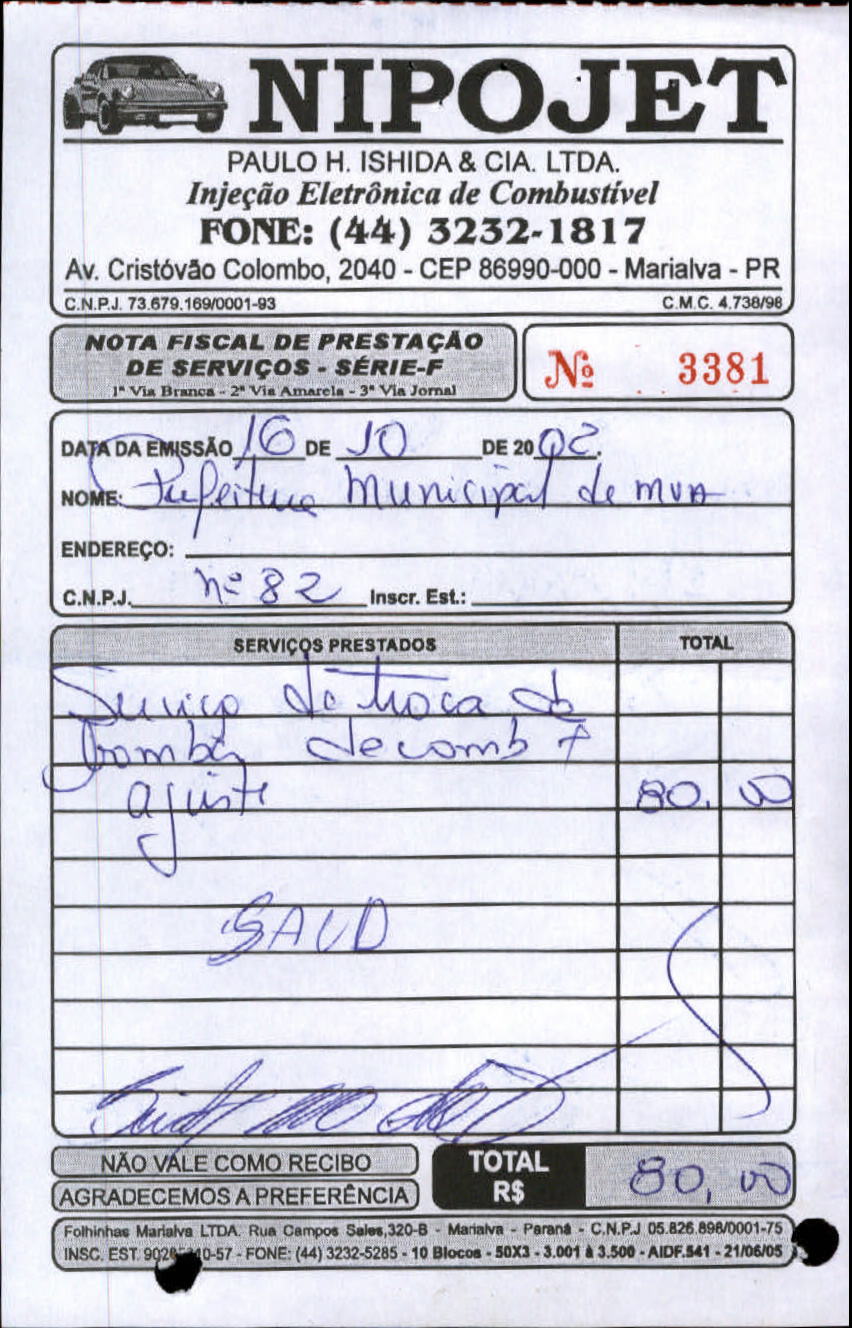 NIPOJET
PAULO H. ISHIDA & CIA. LTDA.
Injeção Eletrônica de Combustível
FONE: (44) 3232-1817
Av. Cristóvão Colombo, 2040 - CEP 86990-000 - Marialva - PR
C.N.P.J. 73.679.169/0001-93 C.M.C. 4.738/98
NOTA FISCAL DE PRESTAÇÃO
DE SERVIÇOS - SÉRIE-F
1ª Via Branca - 2ª Via Amarela - 3ª Via Jornal
Nº 3381
DATA DA EMISSÃO 16 DE 10 DE 20
NOME: Prefeitura Municipal de MVA
ENDEREÇO:
C.N.P.J. nº 82 Inscr. Est.:
SERVIÇOS PRESTADOS TOTAL
Serviço de troca de
bomba de comb +
ajuste 80,00
SAUD
NÃO VALE COMO RECIBO
AGRADECEMOS A PREFERÊNCIA
TOTAL
R$ 80,00
Folhinhas Marialva LTDA. Rua Campos Sales,320-B - Marialva - Paraná - C.N.P.J 05.826.898/0001-75
INSC. EST. - FONE: (44) 3232-5285 - 10 Blocos - 50X3 - 3.001 à 3.500 - AIDF.541 - 21/06/05